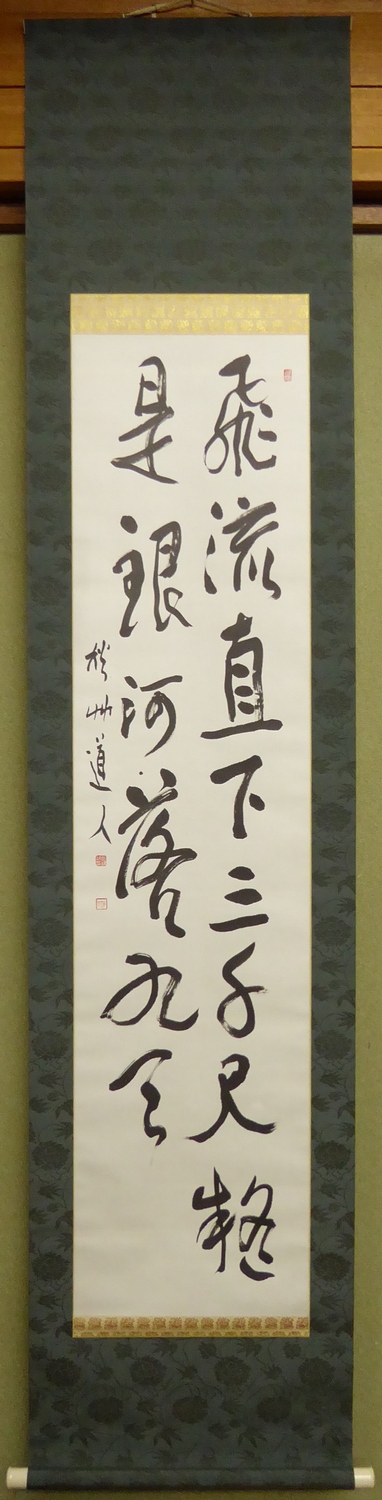 飛流直下三千尺疑
是銀河落九天
州道人